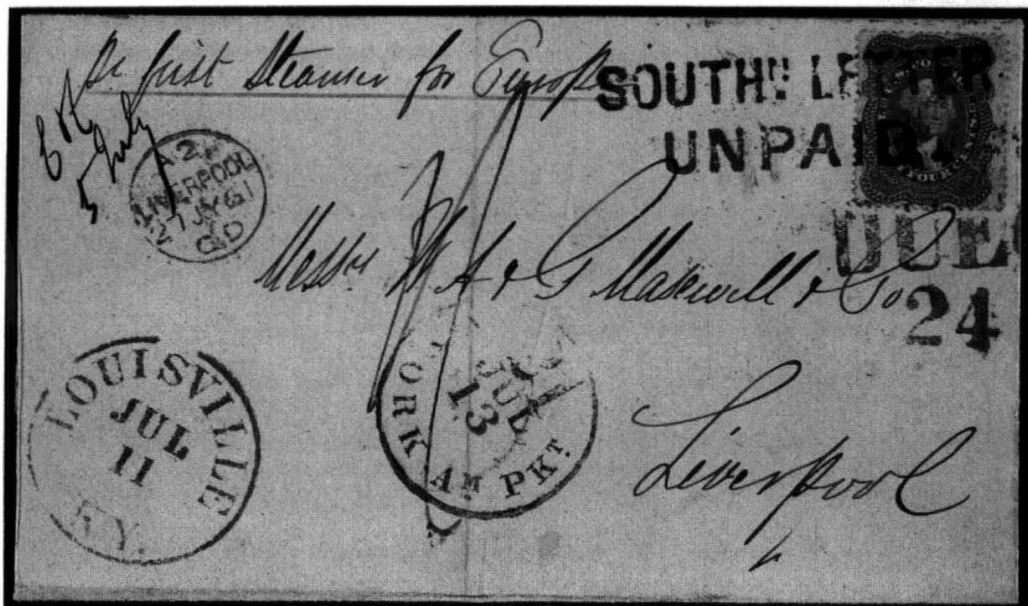 first Steamer for Europe
SOUTHN LETTER
UNPAID.
5 July
LIVERPOOL
JY 61
DUE
24
Messrs W A & G Maxwell & Co
Liverpool
LOUISVILLE
JUL
11
KY.
YORK AM PKT
JUL
13